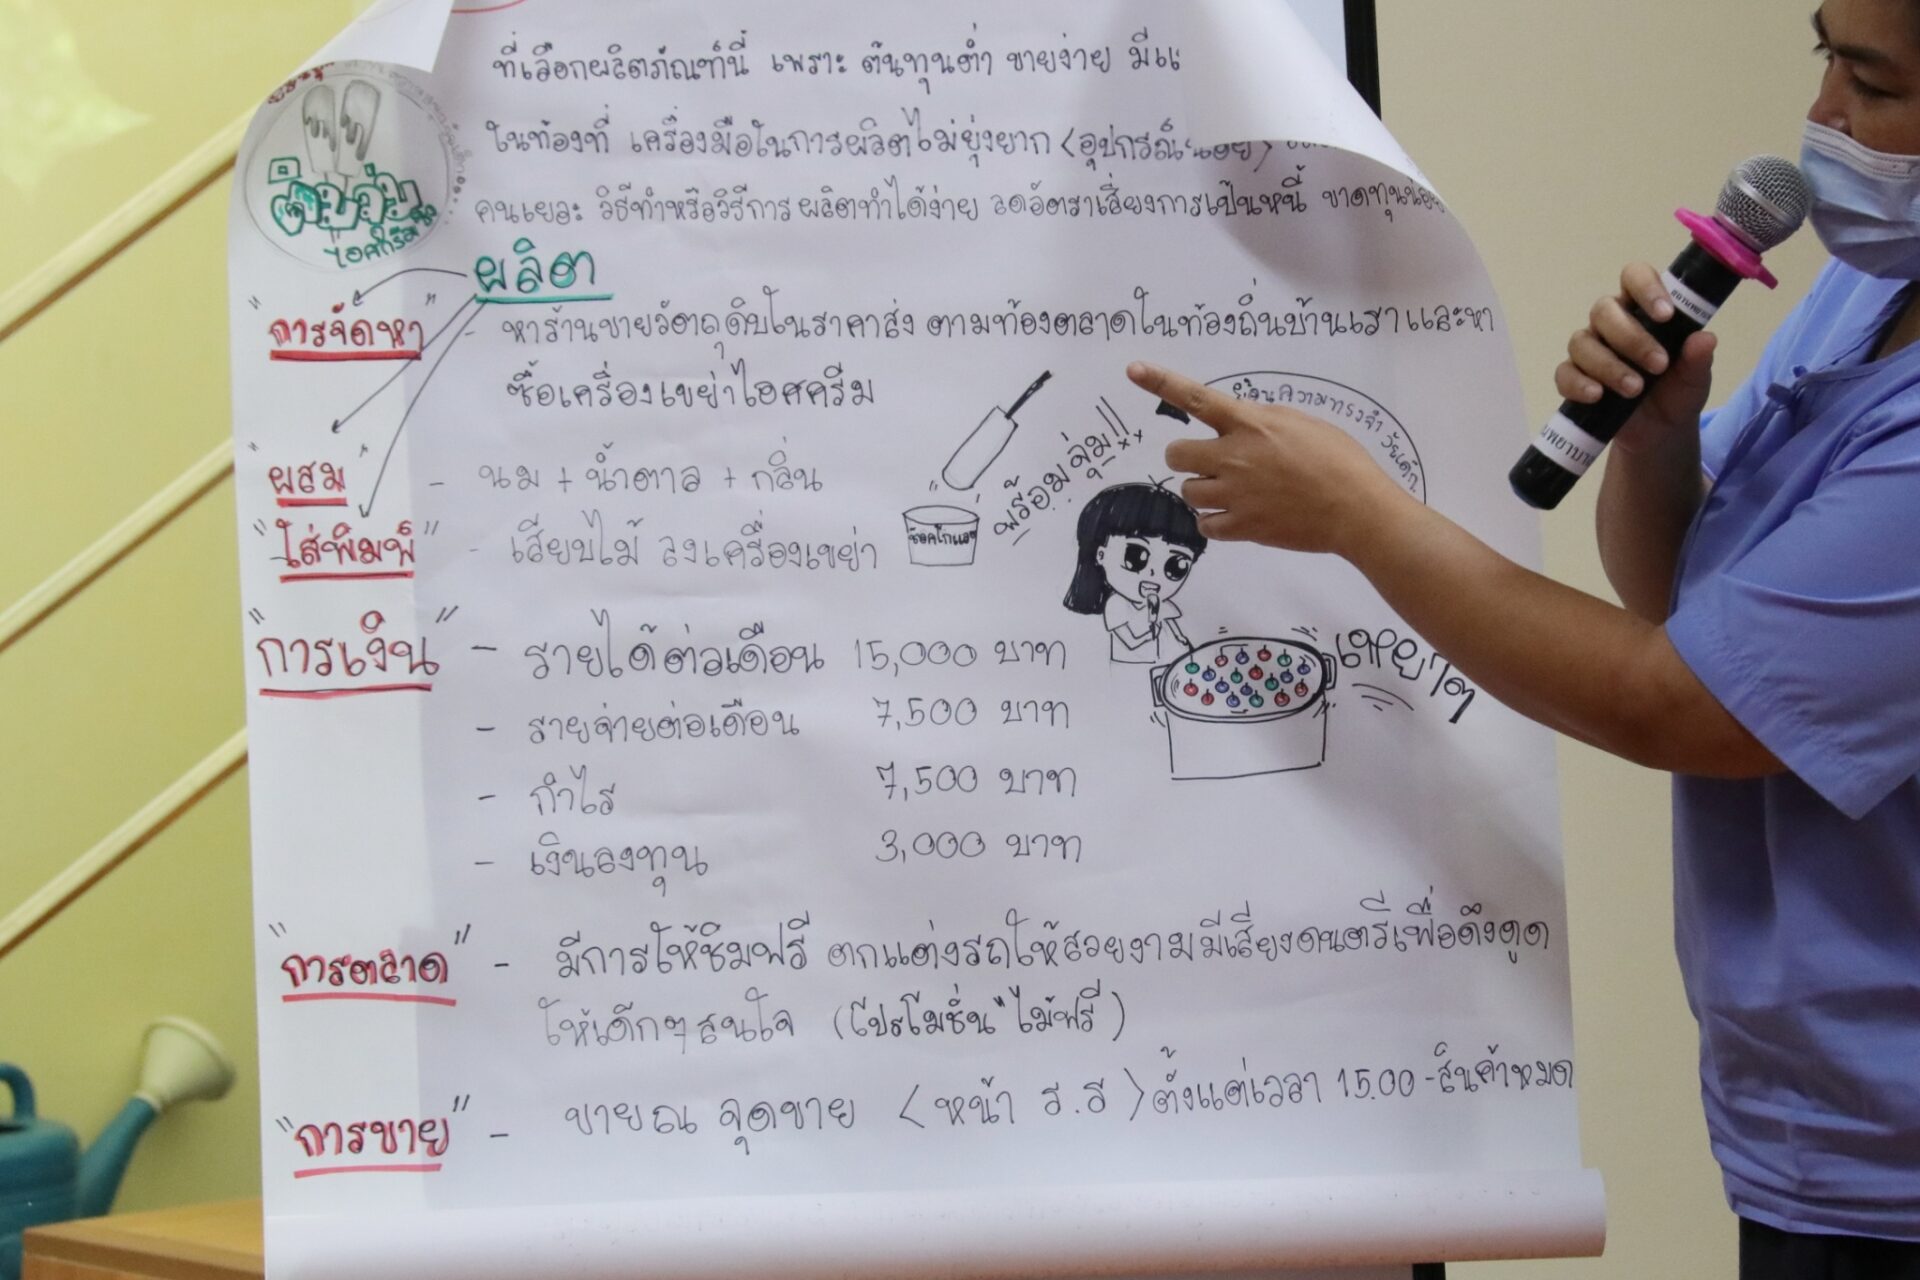 ที่เลือกผลิตภัณฑ์นี้ เพราะ ต้นทุนต่ำ ขายง่าย
ในท้องที่ เครื่องมือในการผลิตไม่ยุ่งยาก <อุปกรณ์น้อย>
คนเยอะ วิธีทำหรือวิธีการผลิตทำได้ง่าย ลดอัตราเสี่ยงการเป็นหนี้ ขาดทุนน้อย
ไอศกรีม
ผลิต
"การจัดหา" - หาร้านขายวัตถุดิบในราคาส่ง ตามท้องตลาดในท้องถิ่นบ้านเราและหา
ซื้อเครื่องเขย่าไอศครีม
ย้อนความทรงจำ วัยเด็ก
พร้อมจุ่ม!!
"ผสม" - นม + น้ำตาล + กลิ่น
"ใส่พิมพ์" - เสียบไม้ ลงเครื่องเขย่า
ช็อคโกแลต
"การเงิน" - รายได้ต่อเดือน 15,000 บาท
เขย่าๆ
- รายจ่ายต่อเดือน 7,500 บาท
- กำไร 7,500 บาท
- เงินลงทุน 3,000 บาท
"การตลาด" - มีการให้ชิมฟรี ตกแต่งรถให้สวยงามมีเสียงดนตรีเพื่อดึงดูด
ให้เด็กๆสนใจ (โปรโมชั่น "ไม้ฟรี)
"การขาย" - ขายณ จุดขาย <หน้า ร.ร> ตั้งแต่เวลา 15.00 - สินค้าหมด